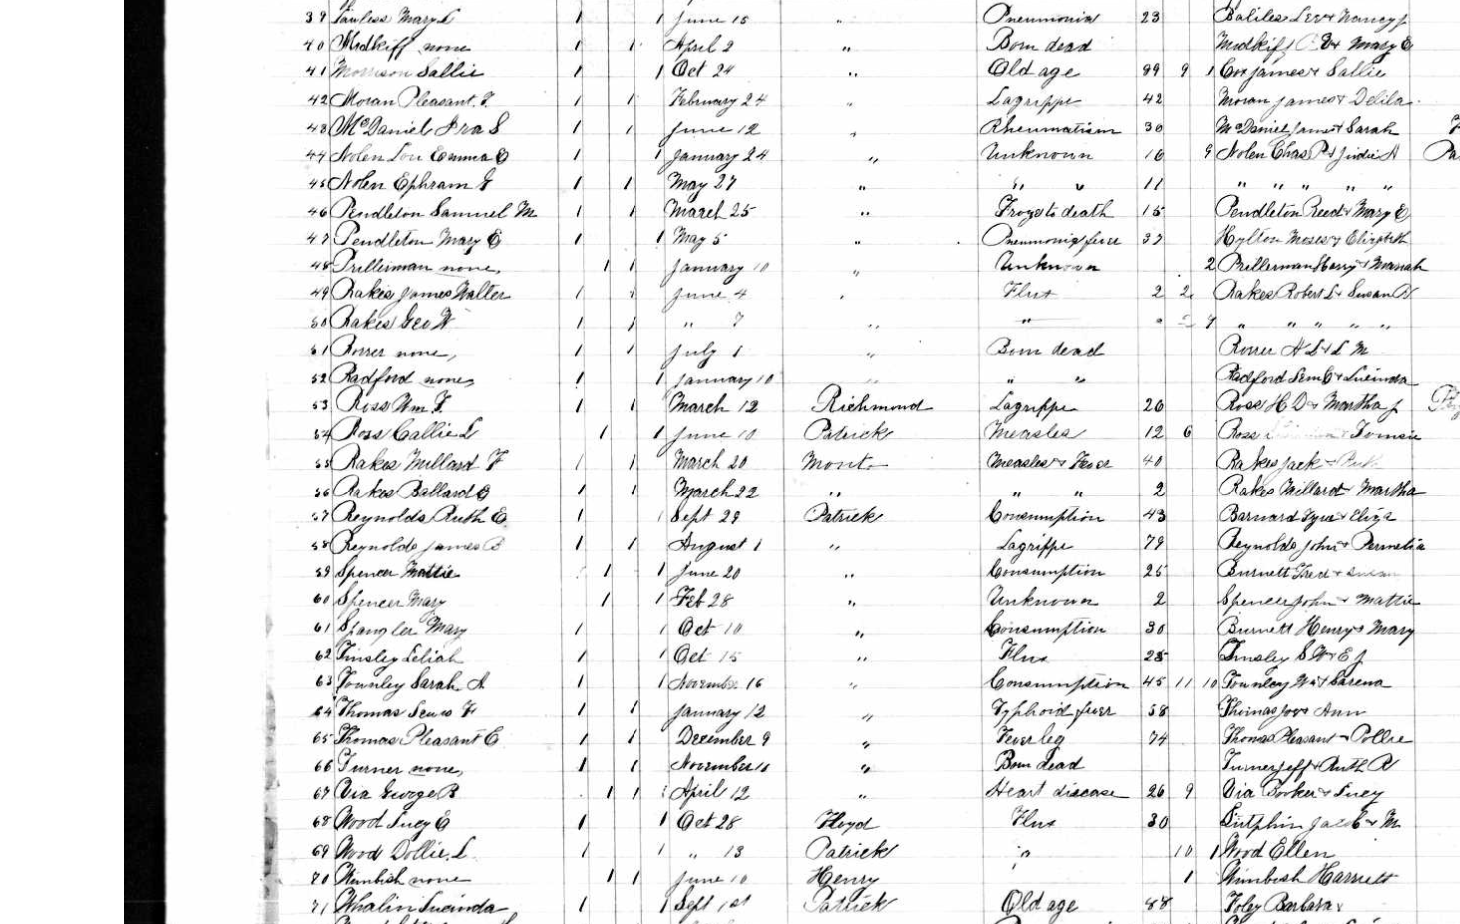 39 Lawless Mary L 1 1 June 15 " Pneumonia 23 Baliles Lee & Nancy J
40 Midkiff none 1 1 April 2 " Born dead Midkiff & Mary E
41 Morrison Sallie 1 1 Oct 24 " Old age 99 9 1 Cox James & Sallie
42 Moran Pleasant. T. 1 1 February 24 " Lagrippe 42 Moran James & Delila
43 McDaniel Ira S 1 1 June 12 " Rheumatism 30 McDaniel James & Sarah
44 Nolen Lou Emma E 1 1 January 24 " Unknown 16 9 Nolen Chas P & Judie A Pa
45 Nolen Ephram G 1 1 May 27 " " " 11 " " " " "
46 Pendleton Samuel M 1 1 March 25 " Froze to death 15 Pendleton Reed & Mary E
47 Pendleton Mary E 1 1 May 5 " Pneumonia fever 37 Hylton Moses & Elizabeth
48 Prillerman none, 1 1 January 10 " Unknown 2 Prillerman Harry & Mariah
49 Rakes James Walter 1 1 June 4 " Flux 2 2 Rakes Robert L & Susan A
50 Rakes Geo W 1 1 " 7 " " 9 " " " " "
51 Rorrer none, 1 1 July 1 " Born dead Rorrer A L & L M
52 Radford none, 1 1 January 10 " " " Radford Sem C & Lucinda
53 Ross Wm T. 1 1 March 12 Richmond Lagrippe 26 Ross H D & Martha J
54 Ross Callie L 1 1 June 10 Patrick Measles 12 6 Ross & Tomsie
55 Rakes Millard F 1 1 March 20 Mont. Measles & Fever 40 Rakes Jack & Ruth
56 Rakes Ballard E 1 1 March 22 " " " 2 Rakes Millard & Martha
57 Reynolds Ruth E 1 1 Sept 29 Patrick Consumption 43 Barnard Tyra & Eliza
58 Reynolds James B 1 1 August 1 " Lagrippe 79 Reynolds John & Permelia
59 Spencer Mattie 1 1 June 20 " Consumption 25 Burnett Fred & Susan
60 Spencer Mary 1 1 Feb 28 " Unknown 2 Spencer John & Mattie
61 Spangler Mary 1 1 Oct 10 " Consumption 30 Burnett Henry & Mary
62 Tinsley Leliah 1 1 Oct 15 " Flux 25 Tinsley S W & E J
63 Townley Sarah A 1 1 November 16 " Consumption 45 11 10 Townley Wm & Sarena
64 Thomas Lewis F 1 1 January 12 " Typhoid fever 58 Thomas Joe & Ann
65 Thomas Pleasant C 1 1 December 9 " Fever leg 74 Thomas Pleasant & Pollie
66 Turner none, 1 1 November 15 " Born dead Turner Jeff & Ruth R
67 Via George B 1 1 April 12 " Heart disease 26 9 Via Booker & Lucy
68 Wood Lucy E 1 1 Oct 28 Floyd Flux 30 Sutphin Jacob & M
69 Wood Dollie. L. 1 1 " 13 Patrick " 10 1 Wood Ellen
70 Wimbish none 1 1 June 10 Henry ' 1 Wimbish Harriett
71 Whalin Lucinda 1 1 Sept 1st Patrick Old age 88 Foley Barbara &